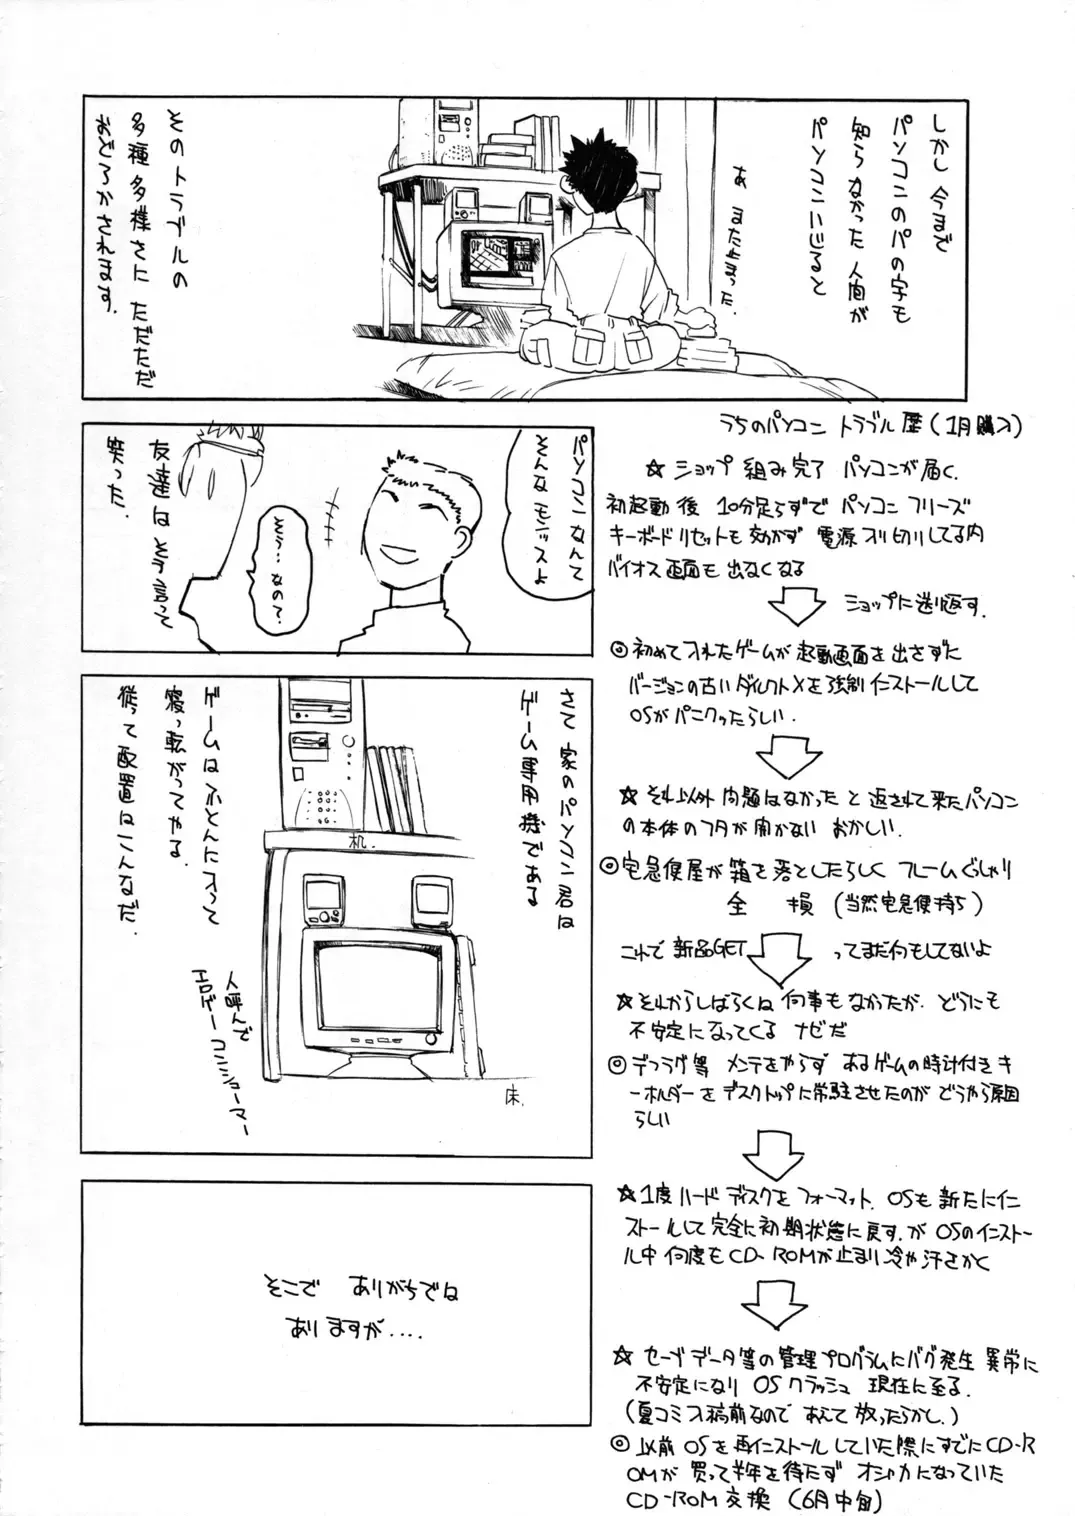 しかし 今まで
パソコンのパの字も
知らなかった 人間が
パソコンいじると
あ また止まった。
そのトラブルの
多種多様さに ただただ
おどろかされます。
パソコンなんて
そんなモンッスよ
そう…なの?
友達は そう言って
笑った。
さて 家のパソコン君は
ゲーム専用機である
ゲームは ふとんに入って
寝っ転がってやる。
従って配置はこんなだ。
机.
人呼んで
エロゲーコンショーマー
床.
そこで ありがちでは
ありますが....
うちのパソコン トラブル歴(1月購入)
☆ ショップ 組み完了 パソコンが届く.
初起動後 10分足らずで パソコン フリーズ
キーボードリセットも効かず 電源入り切りしてる内
バイオス画面も 出なくなる
ショップに送り返す.
◎ 初めて入れたゲームが 起動画面を出さずに
バージョンの古い ダイレクトXを強制インストールして
OSがパニクったらしい.
☆ それ以外 問題はなかった と返されて来たパソコン
の本体のフタが開かない おかしい.
◎ 宅急便屋が 箱を落としたらしく フレームぐしゃり
全 損 (当然宅急便持ち)
これで 新品GET ってまだ何もしてないよ
☆ それからしばらくは 何事もなかったが. どうにも
不安定になってくる ナゼだ
◎ デフラグ等 メンテをやらず あるゲームの時計付きキ
ーホルダーをデスクトップに常駐させたのが どうやら原因
らしい
☆ 1度ハードディスクをフォーマット. OSも 新たにイン
ストールして完全に初期状態に戻す.が OSのインストー
ル中 何度もCD-ROMが止まり冷や汗をかく
☆ セーブデータ等の管理プログラムにバグ発生 異常に
不安定になり OSクラッシュ 現在に至る.
(夏コミ入稿前なので あえて 放ったらかし.)
◎ 以前 OSを再インストールしていた際にすでにCD-R
OMが 買って半年を待たず オシャカになっていた
CD-ROM交換 (6月中旬)